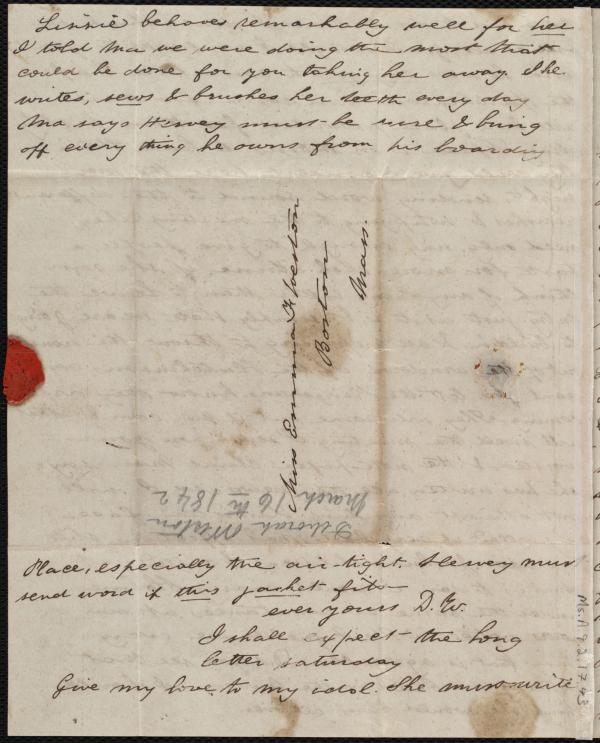 Lizzie behaves remarkably well for her
I told Ma we were doing the most that
could be done for you taking her away. She
writes, sews & brushes her teeth every day
Ma says Hervey must be sure & bring
off every thing he owns from his boarding
Miss Emma F Weston
Boston
Mass.
Deborah Weston
March 16th 1842
Place, especially the air-tight. Hervey must
send word if this jacket fits
ever yours D. W.
I shall expect the long
letter saturday
Give my love to my idol. She must write
Ms.A.9.2.17.43